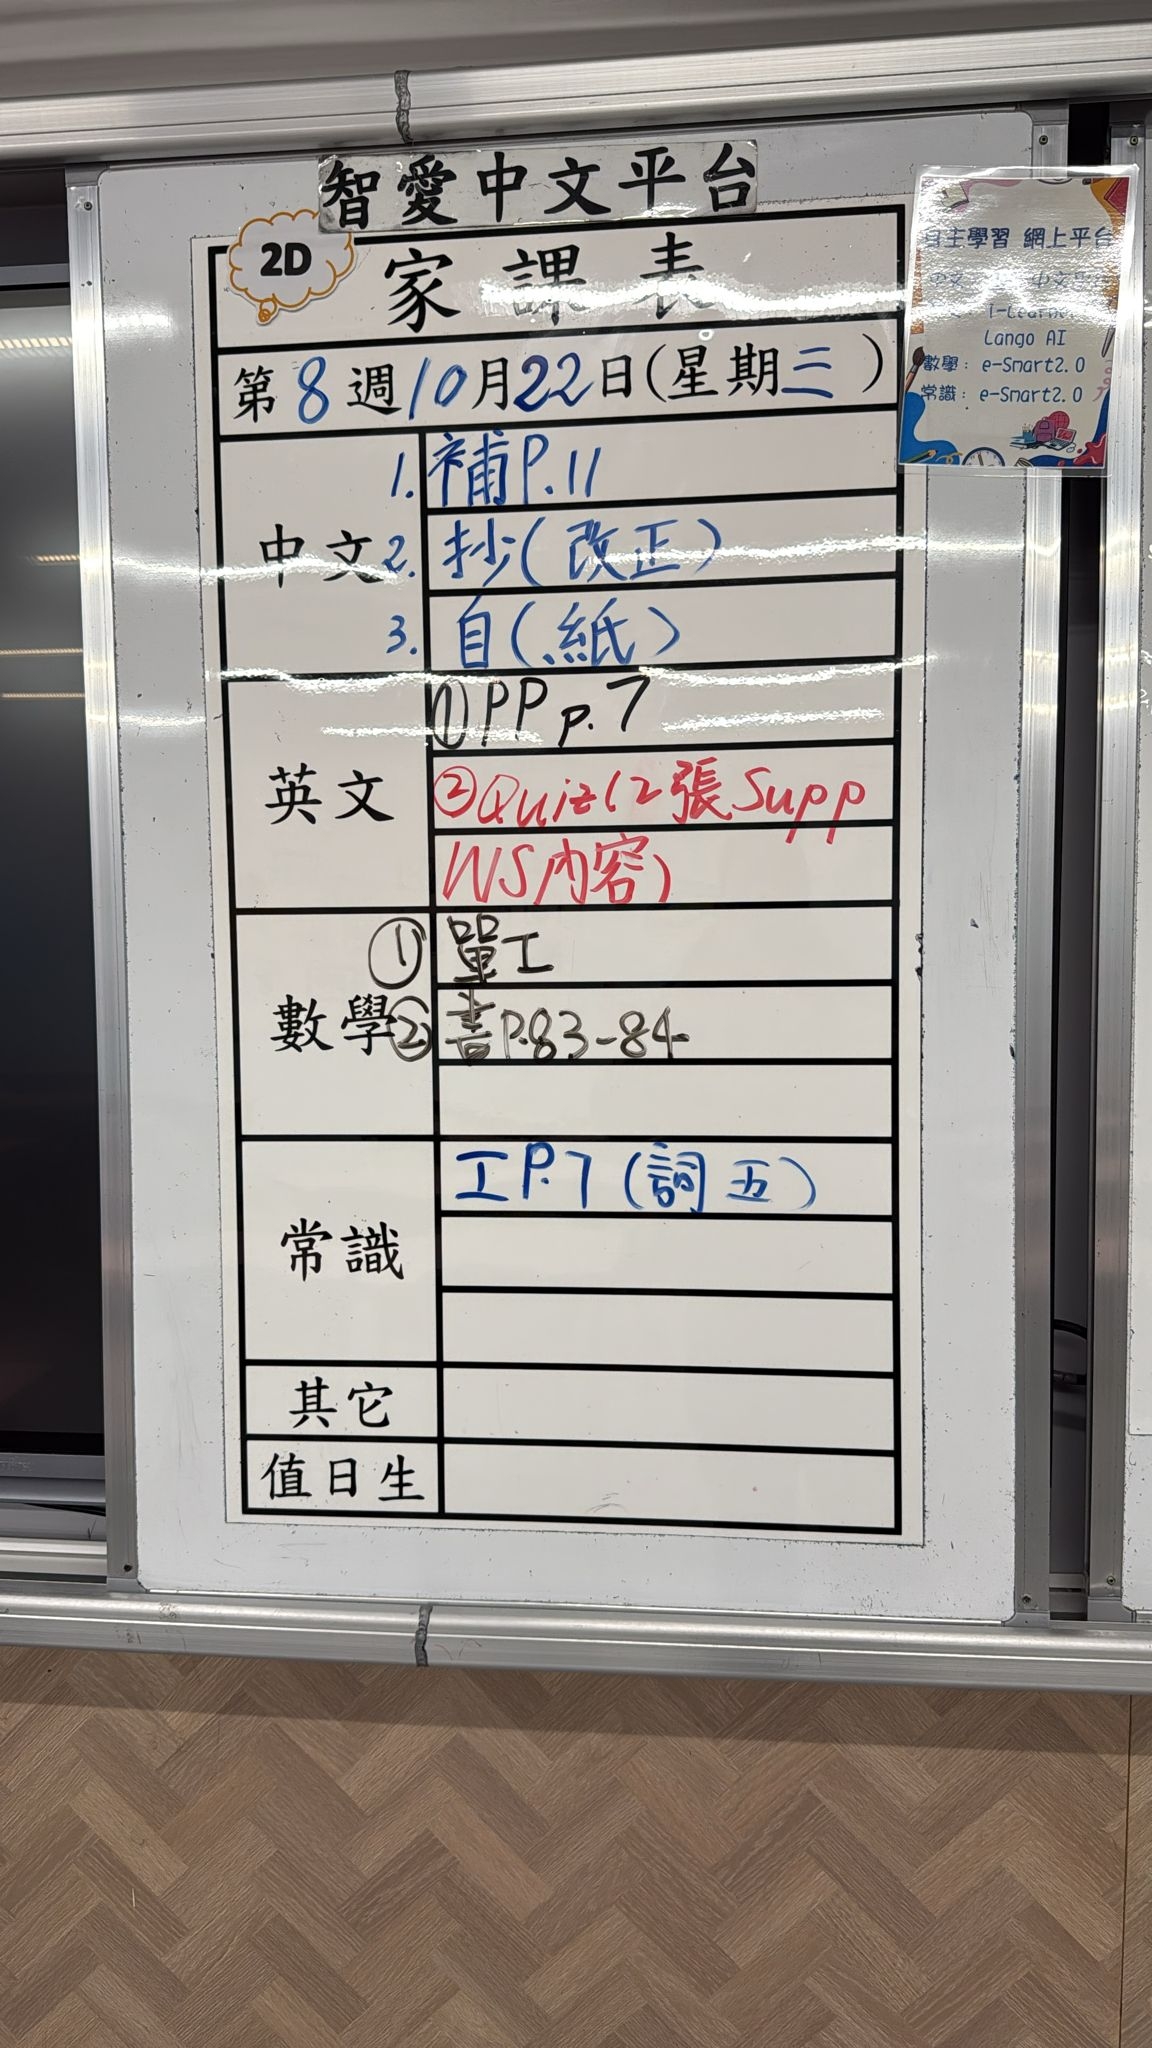 智愛中文平台
2D
家課表
第8週10月22日(星期三)
中文
1. 補P.11
2. 抄(改正)
3. 自(紙)
英文
① PP p.7
② Quiz(2張Supp
WS內容)
數學
① 單工
② 書P.83-84
常識
工P.7(詞五)
其它
值日生
自主學習 網上平台
中文
Lango AI
數學: e-Smart2.0
常識: e-Smart2.0